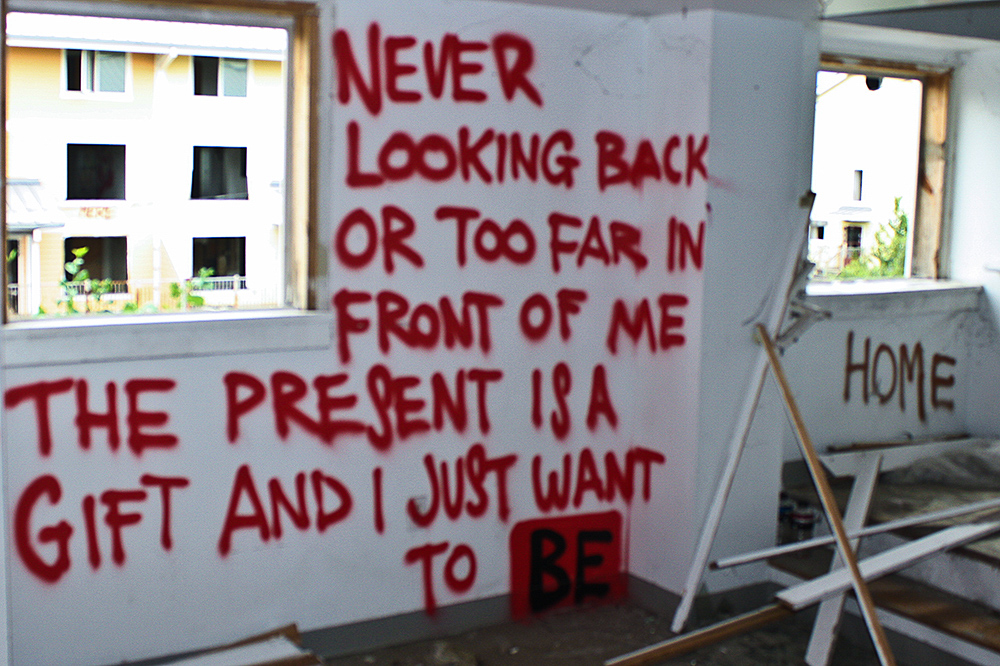 NEVER
LOOKING BACK
OR TOO FAR IN
FRONT OF ME
THE PRESENT IS A
GIFT AND I JUST WANT
TO BE
HOME